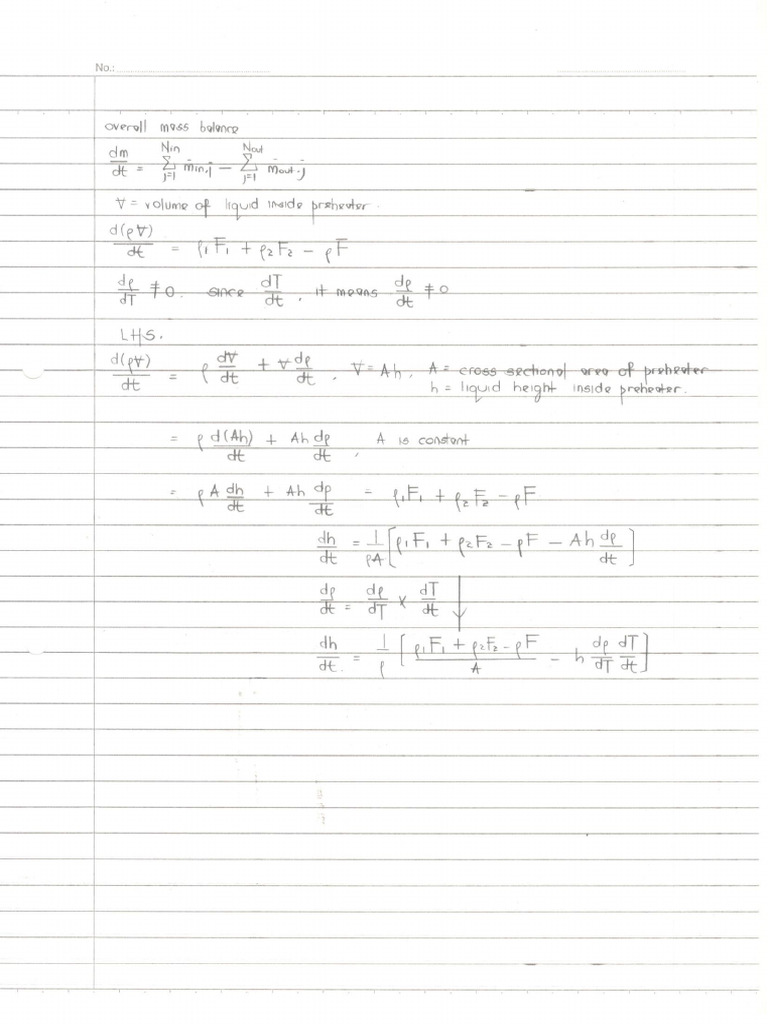 No.:
overall mass balance
dm/dt = Σ_{j=1}^{Nin} ṁin,j − Σ_{j=1}^{Nout} ṁout,j
V = volume of liquid inside preheater.
d(ρV)/dt = ρ₁F₁ + ρ₂F₂ − ρF
dρ/dT ≠ 0. since dT/dt, it means dρ/dt ≠ 0
LHS.
d(ρV)/dt = ρ dV/dt + V dρ/dt, V = Ah, A = cross sectional area of preheater
h = liquid height inside preheater.
= ρ d(Ah)/dt + Ah dρ/dt, A is constant
= ρA dh/dt + Ah dρ/dt = ρ₁F₁ + ρ₂F₂ − ρF
dh/dt = 1/ρA [ρ₁F₁ + ρ₂F₂ − ρF − Ah dρ/dt]
dρ/dt = dρ/dT × dT/dt ↓
dh/dt. = 1/ρ [(ρ₁F₁ + ρ₂F₂ − ρF)/A − h dρ/dT dT/dt]